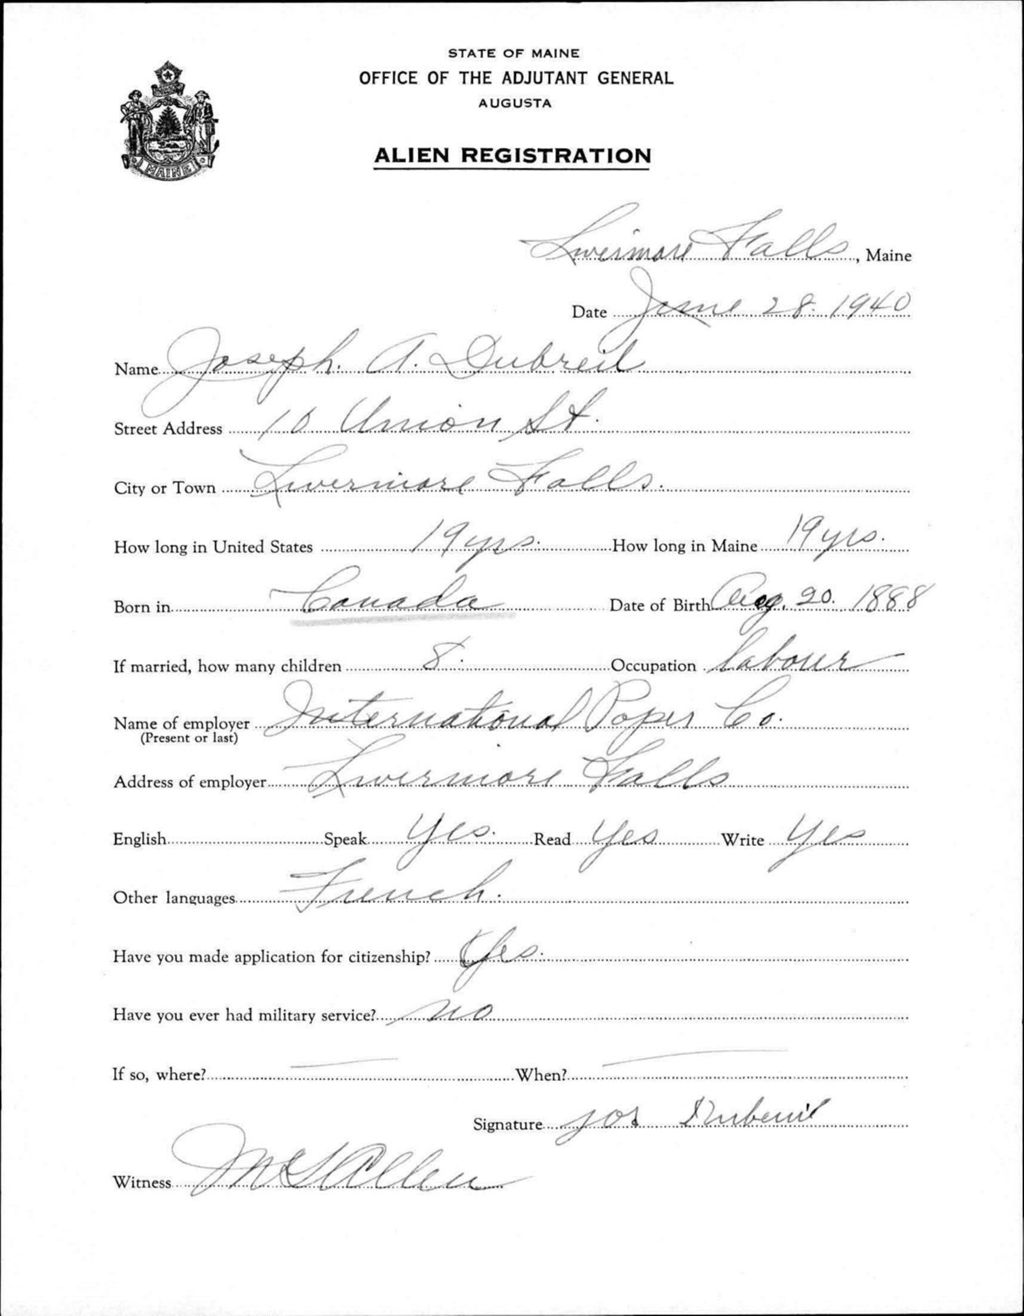 STATE OF MAINE
OFFICE OF THE ADJUTANT GENERAL
AUGUSTA
ALIEN REGISTRATION
MAINE
Livermore Falls, Maine
Date June 28. 1940
Name Joseph. A. Dubreil
Street Address 10 Union St.
City or Town Livermore Falls.
How long in United States 19 yrs. How long in Maine 19 yrs.
Born in Canada Date of Birth Aug. 20. 1888
If married, how many children 8. Occupation labour
Name of employer International Paper Co.
(Present or last)
Address of employer Livermore Falls
English Speak Yes. Read Yes Write Yes
Other languages French.
Have you made application for citizenship? Yes.
Have you ever had military service? no
If so, where? — When? —
Signature Jos
Witness Allen